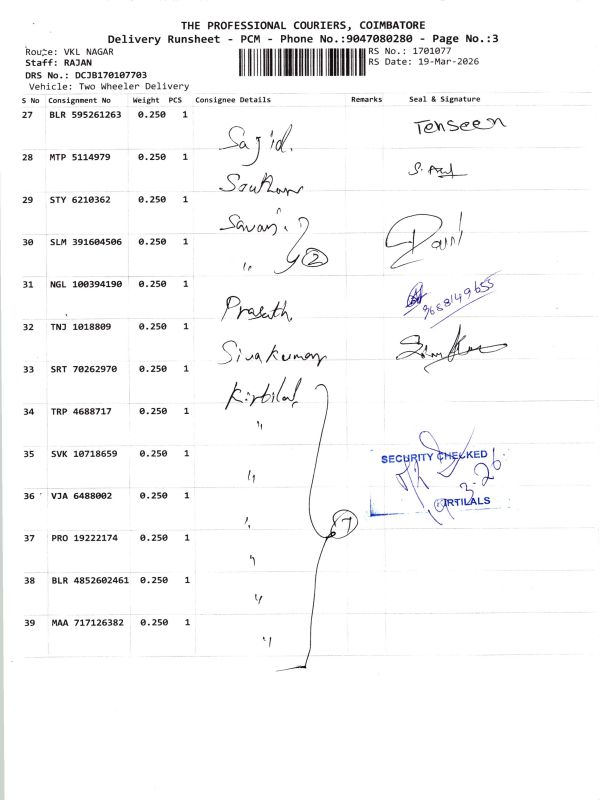 THE PROFESSIONAL COURIERS, COIMBATORE
Delivery Runsheet - PCM - Phone No.:9047080280 - Page No.:3
Route: VKL NAGAR
RS No.: 1701077
Staff: RAJAN
RS Date: 19-Mar-2026
DRS No.: DCJB170107703
Vehicle: Two Wheeler Delivery
S No Consignment No Weight PCS Consignee Details Remarks Seal & Signature
27 BLR 595261263 0.250 1 Sajid. Tehseen
28 MTP 5114979 0.250 1
29 STY 6210362 0.250 1
30 SLM 391604506 0.250 1 " 2
31 NGL 100394190 0.250 1 Prasath. 9688149655
32 TNJ 1018809 0.250 1 Sivakumar
33 SRT 70262970 0.250 1
34 TRP 4688717 0.250 1 "
35 SVK 10718659 0.250 1 " SECURITY CHECKED
36 VJA 6488002 0.250 1 " KIRTILALS
37 PRO 19222174 0.250 1 " 7
38 BLR 4852602461 0.250 1 "
39 MAA 717126382 0.250 1 "